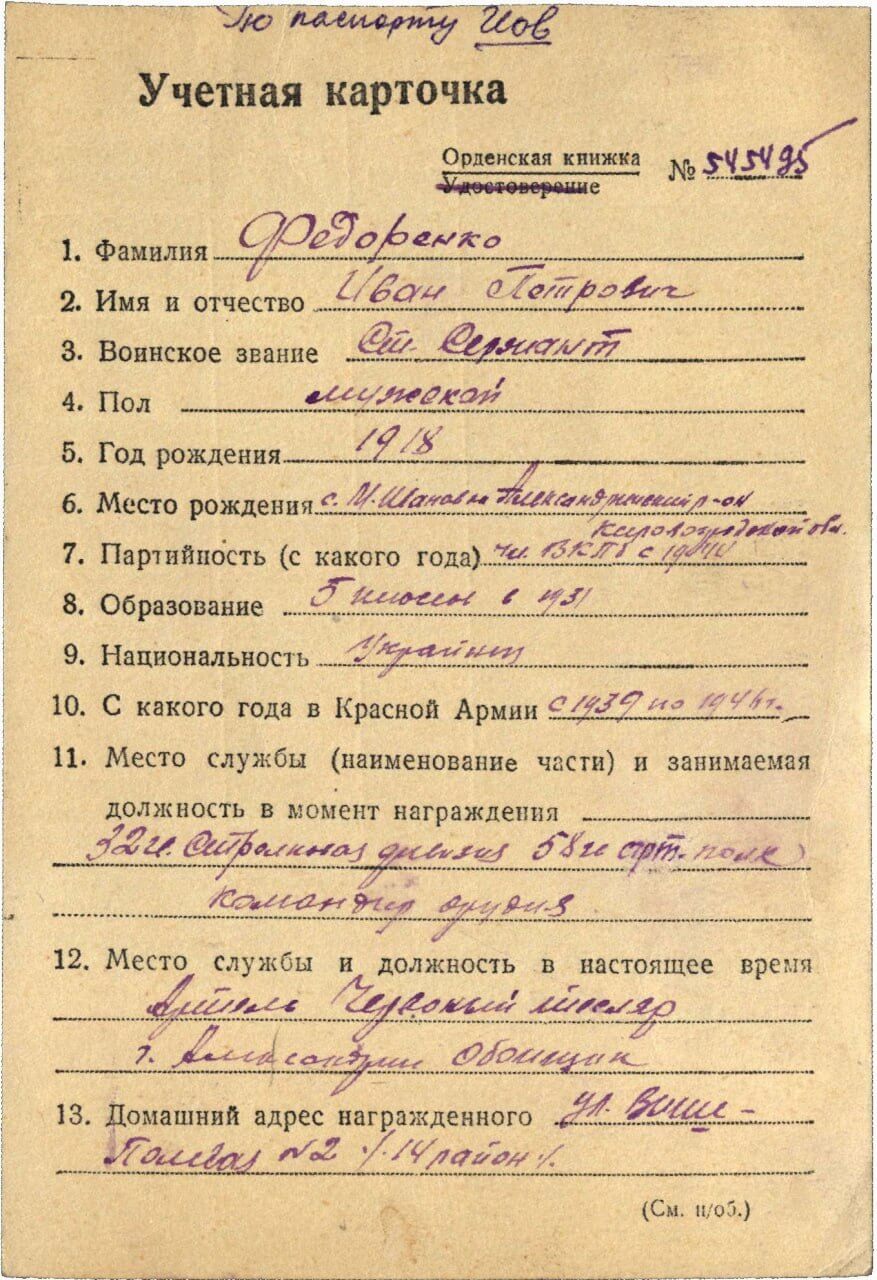 По паспорту Иов
Учетная карточка
Орденская книжка
Удостоверение
№ 545495
1. Фамилия Федоренко
2. Имя и отчество Иван Петрович
3. Воинское звание Ст. Сержант
4. Пол мужской
5. Год рождения 1918
6. Место рождения с. М. Шановка Александрийский р-он
Кировоградской обл.
7. Партийность (с какого года) чл. ВКПб с 1944
8. Образование 5 классов в 1931
9. Национальность Украинец
10. С какого года в Красной Армии с 1939 по 1946 г.
11. Место службы (наименование части) и занимаемая
должность в момент награждения
32 гв. Стрелковая дивизия 58 гв арт. полк
командир орудия
12. Место службы и должность в настоящее время
Артель Червоный тесляр
г. Александрии Обойщик
13. Домашний адрес награжденного ул.
№ 2 /. 14 район /.
(См. н/об.)